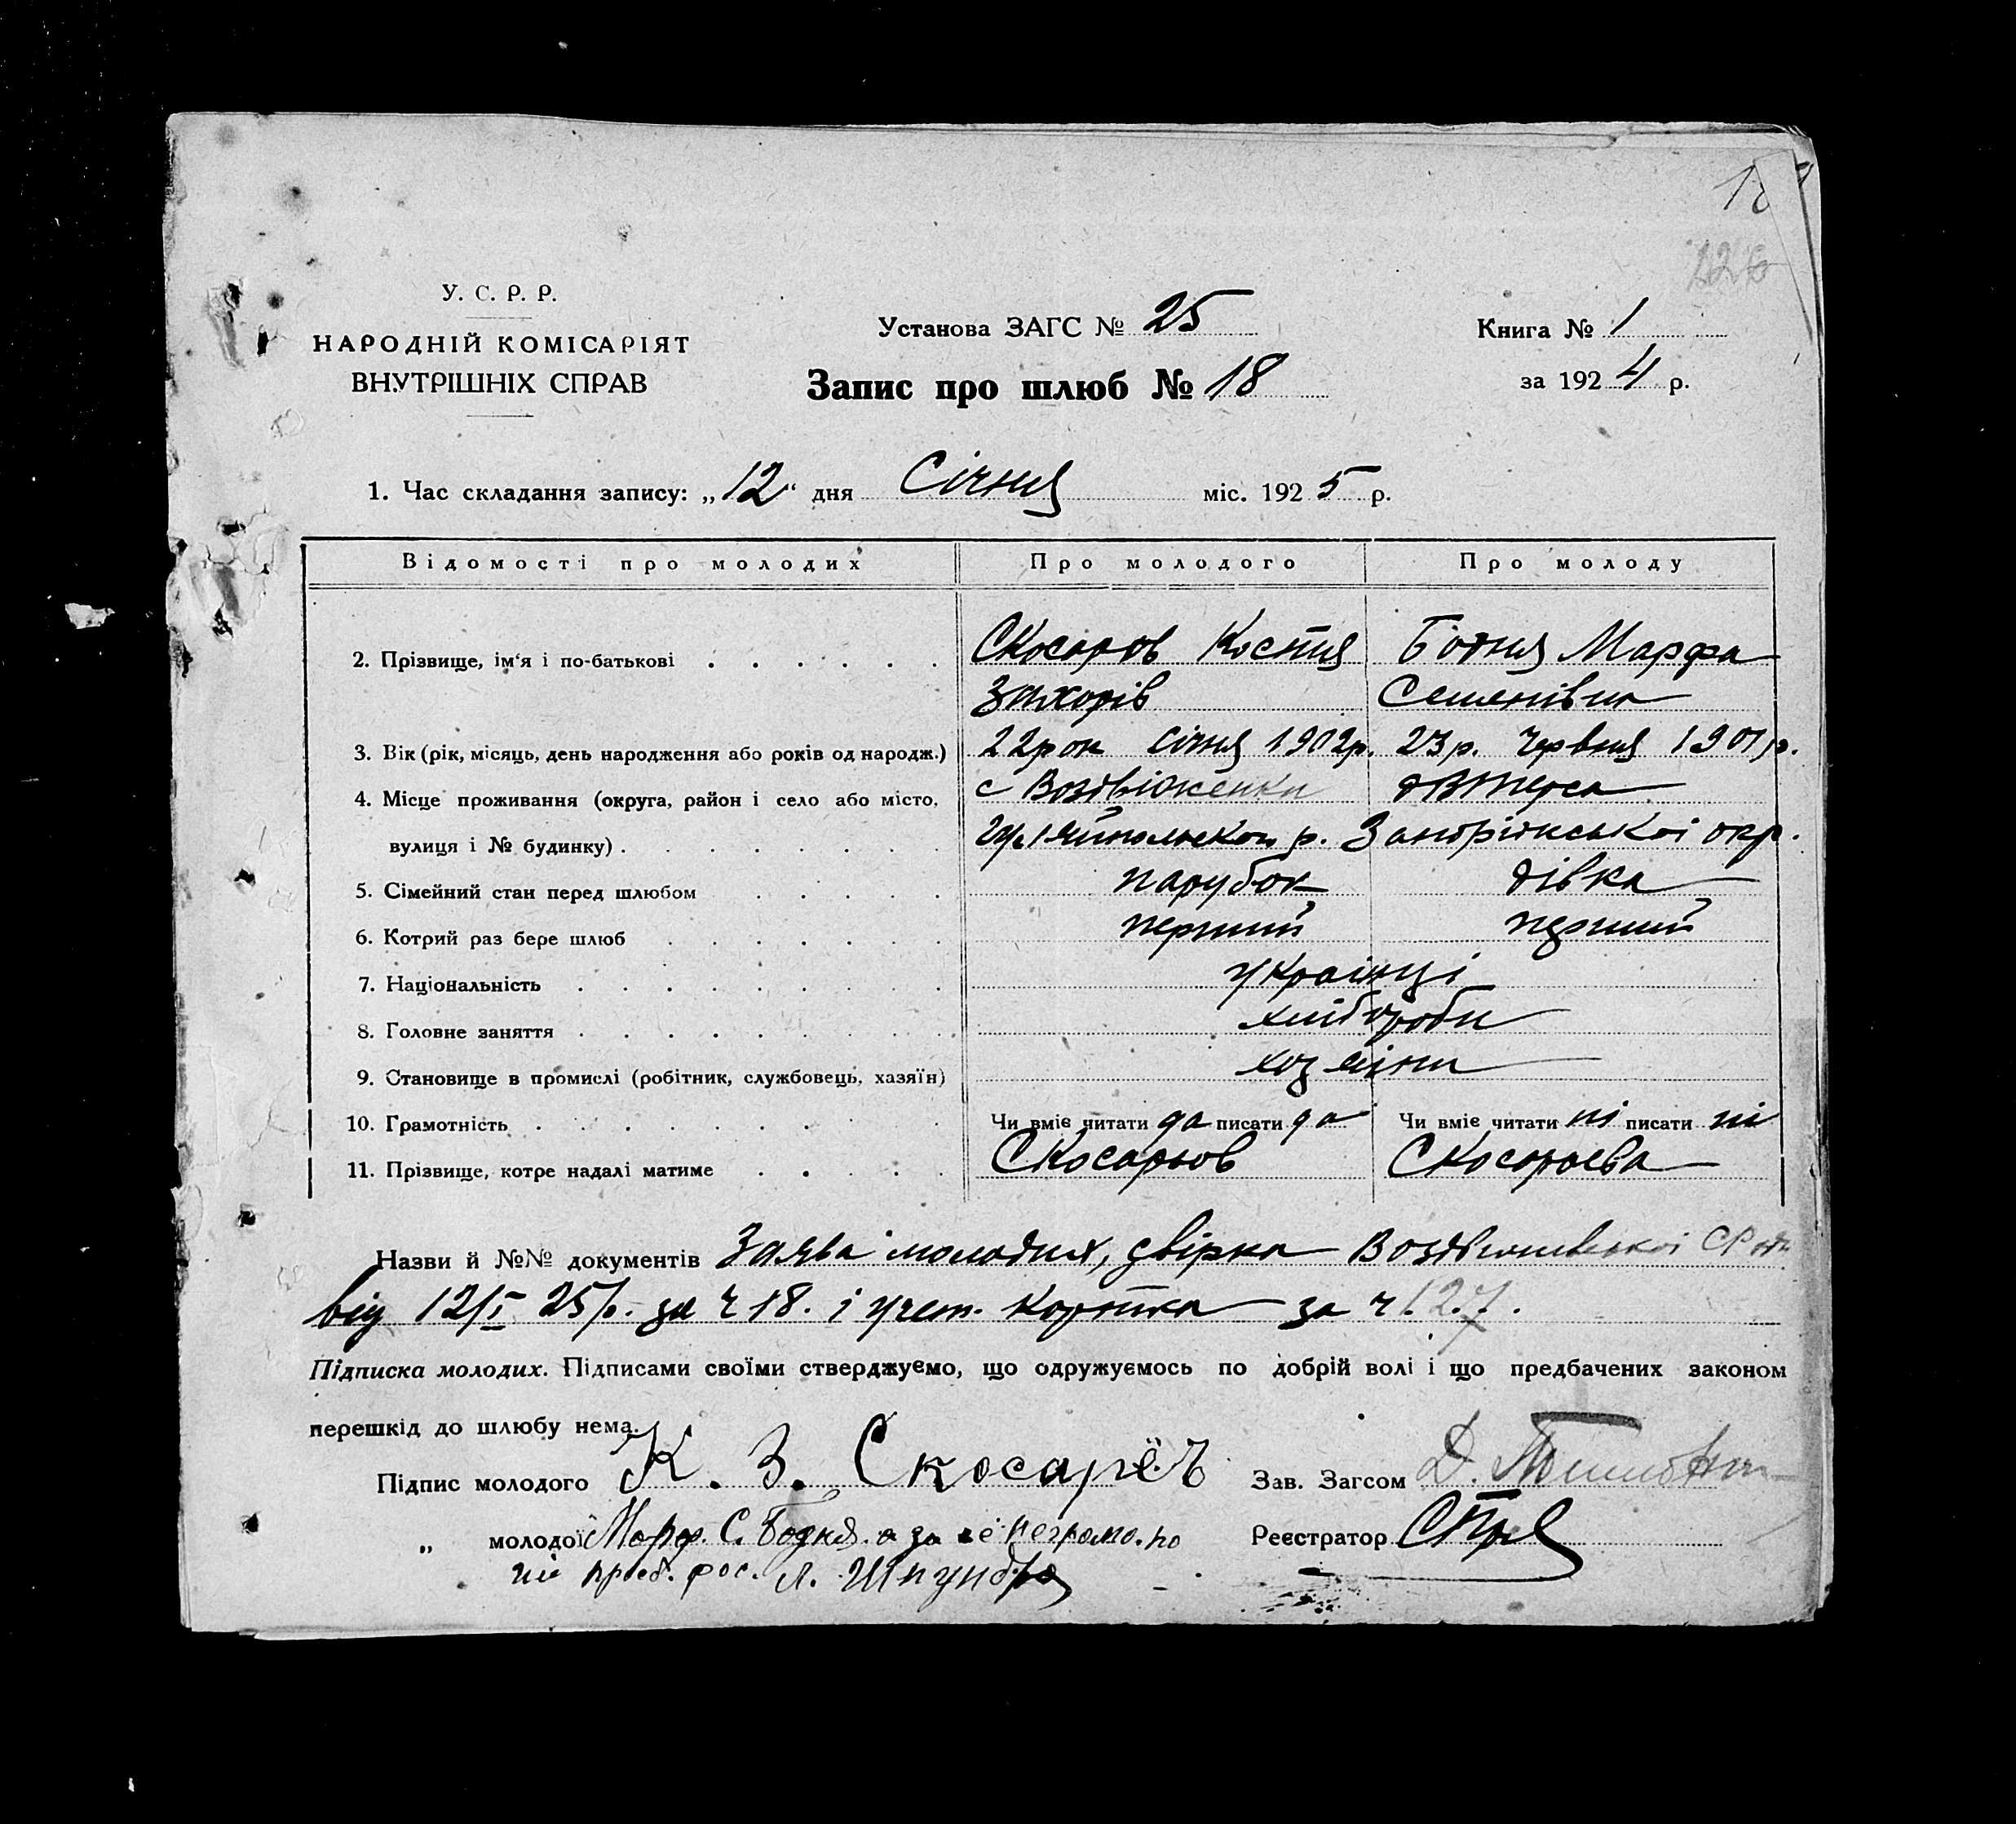 126
У. С. Р. Р.
НАРОДНІЙ КОМІСАРІЯТ
ВНУТРІШНІХ СПРАВ
Установа ЗАГС № 25
Запис про шлюб № 18
Книга № 1
за 1924 р.
1. Час складання запису: „12" дня Січня міс. 1925 р.
Відомості про молодих Про молодого Про молоду
2. Прізвище, ім'я і по-батькові Скосарьов Костя Бодня Марфа
Захорів Семенівна
3. Вік (рік, місяць, день народження або років од народж.) 22 рок січня 1902р. 23р. червня 1901р.
4. Місце проживання (округа, район і село або місто, с Воздвіженки
вулиця і № будинку) р. Запоріжської окр.
5. Сімейний стан перед шлюбом парубок дівка
6. Котрий раз бере шлюб перший перший
7. Національність українці
8. Головне заняття хліб'ороби
9. Становище в промислі (робітник, службовець, хазяїн) хозяїни
10. Грамотність Чи вміє читати да писати да Чи вміє читати ні писати ні
11. Прізвище, котре надалі матиме Скосарьов Скосарьева
Назви й №№ документів Заява молодих, звірка
від 12/I 25р. за ч 18. і учет. картка за ч. 127.
Підписка молодих. Підписами своїми стверджуємо, що одружуємось по добрій волі і що предбачених законом
перешкід до шлюбу нема.
Підпис молодого К. З. Скосарёъ Зав. Загсом Д.
„ молодої Марф. С. Бодня. а за её неграмо. по
её прозб. рос. Л. Шпундра
Реєстратор